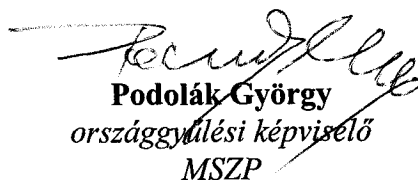 Podolák György
országgyűlési képviselő
MSZP